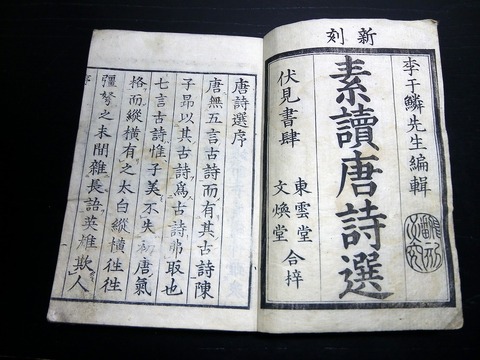 新刻
李于鱗先生編輯
素讀唐詩選
伏見書肆
東雲堂
文煥堂
合梓
唐詩選序
唐無五言古詩而有其古詩陳
子昻以其古詩爲古詩弗取也
七言古詩惟子美不失初唐氣
格而縱橫有之太白縱橫往往
彊弩之末間雜長語英雄欺人